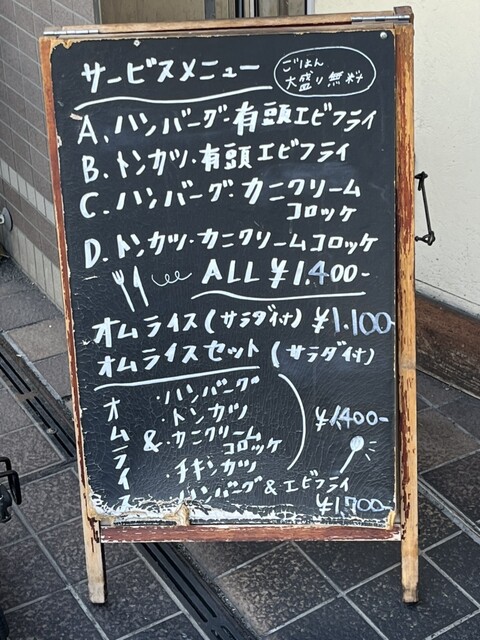 サービスメニュー
ごはん
大盛り無料
A. ハンバーグ・有頭エビフライ
B. トンカツ・有頭エビフライ
C. ハンバーグ・カニクリーム
コロッケ
D. トンカツ・カニクリームコロッケ
ALL ¥1.400-
オムライス(サラダ付) ¥1.100-
オムライスセット (サラダ付)
オムライス &
・ハンバーグ
・トンカツ
・カニクリーム
コロッケ
・チキンカツ
¥1400-
・ハンバーグ&エビフライ
¥1,700-